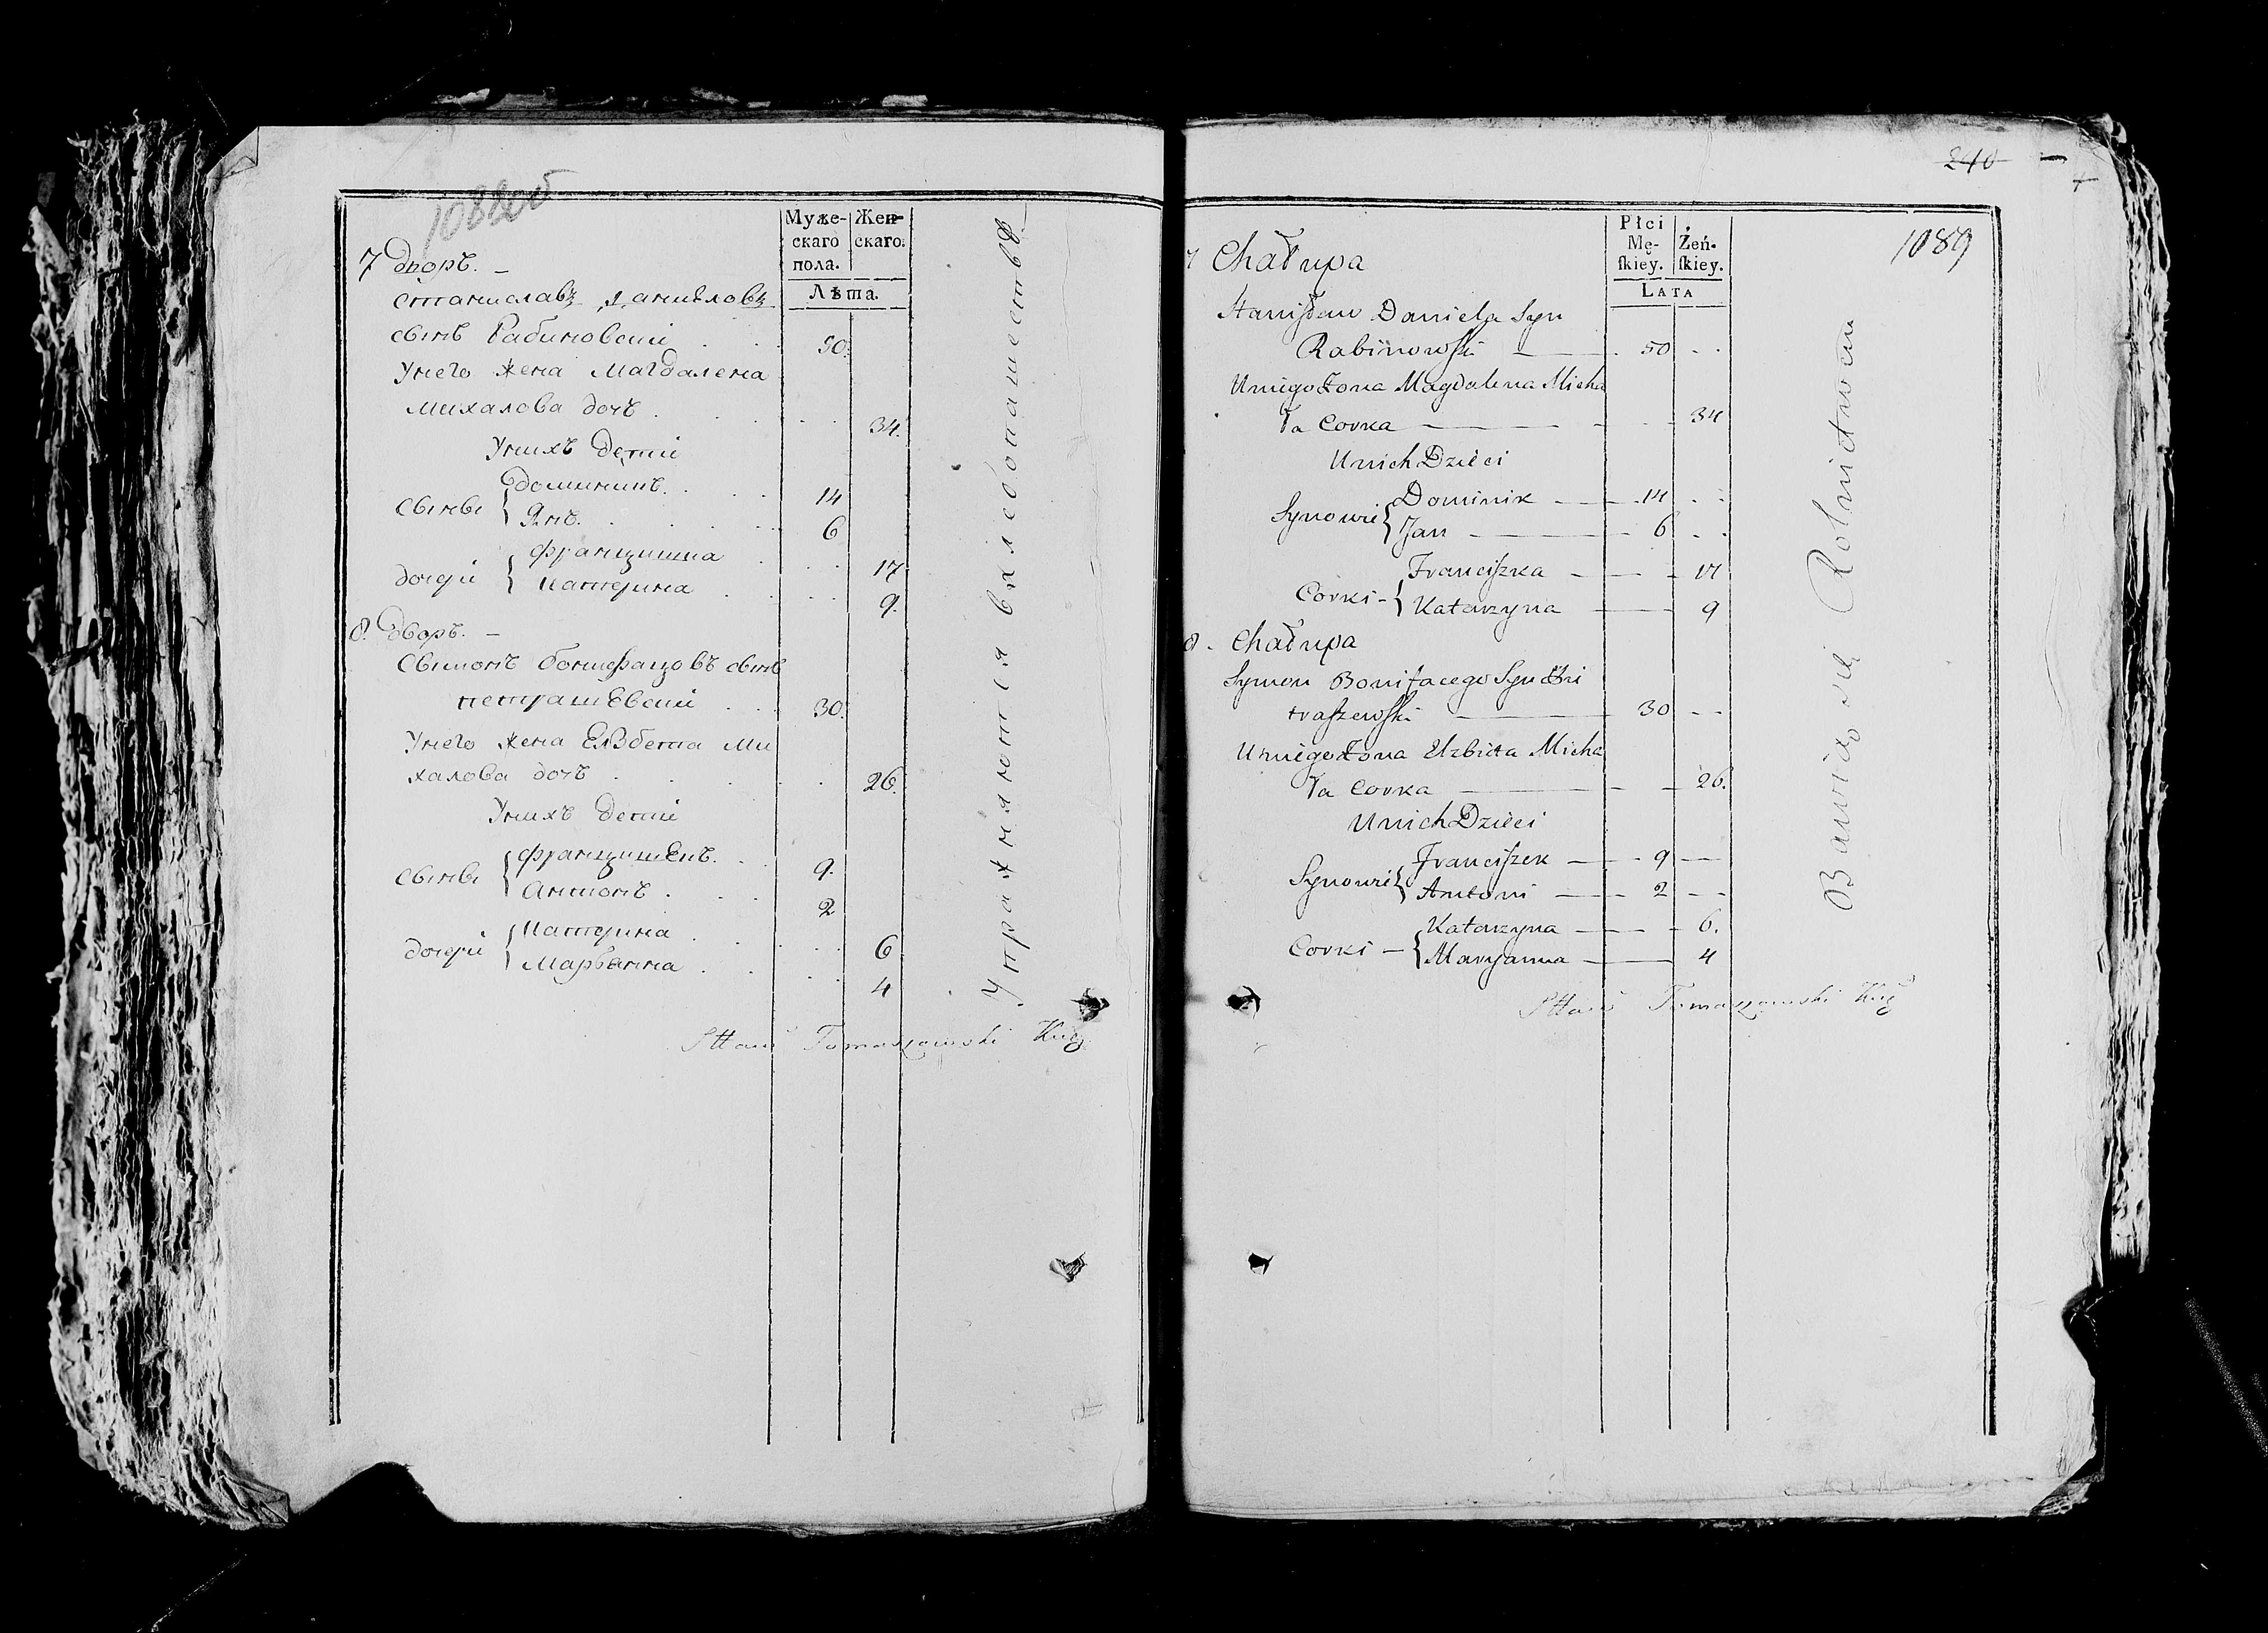 1088об
Муже-
скаго
пола.
Жен-
скаго.
Лѣта.
7 дворъ. –
Станиславъ Даниеловъ
сынъ Рабиновски . . 50.
Унего жена Магдалена
Михалова дочъ . . . . 34.
Унихъ дети
сыны { Доминикъ. . . . 14
Янъ. . . . . 6
дочери { Францишка . . . 17
Катерина . . . . 9.
8. дворъ. –
Сымонъ Бонифацовъ сынъ
петрашевски . . . 30.
Унего жена Елзбета Ми
халова дочъ . . . . 26.
Унихъ дети
сыны { Францишекъ. . . 9.
Антонъ . . . . 2
дочери { Катерина . . . . 6
Марьянна . . . . 4
Упражняются вхлебопашествѣ
Tomaszewski
240
1089
Płci
Mę-
ſkiey.
Żeń-
ſkiey.
LATA
7 Chałupa
Stanisław Daniela Syn
Rabinowſki — 50 - -
Uniego Żona Magdalena Micha
ła Corka — 34
Unich Dzieci
Synowie { Dominik — 14 - -
Jan — 6 - -
Corki - { Franciſzka — 17
Katarzyna — 9
8. Chałupa
Symon Bonifacego Syn
traſzewſki — 30 - -
Uniego Żona Elzbieta Micha
ła Corka — 26.
Unich Dzieci
Synowie { Franciſzek — 9 - -
Antoni — 2 - -
Corki - { Katarzyna — 6.
Maryanna — 4
Bawią się Rolnictwem
Tomaszewski